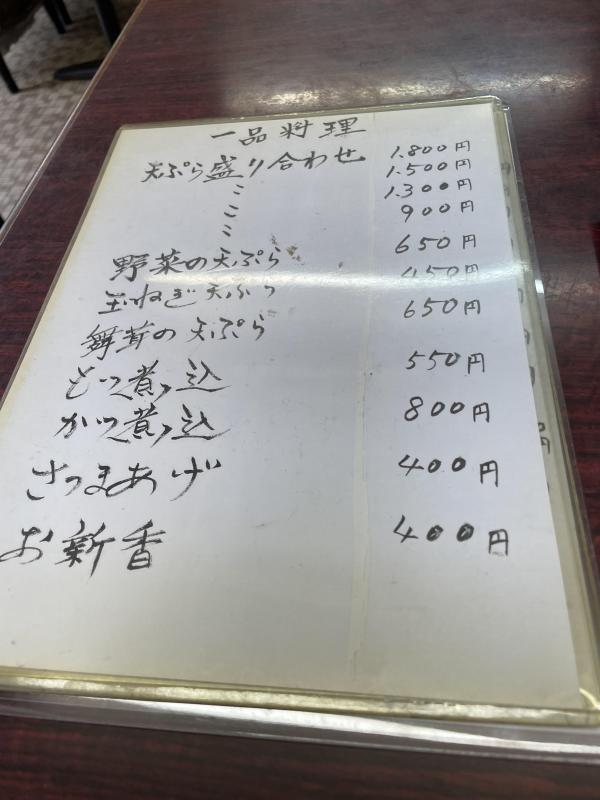 一品料理
天ぷら盛り合わせ 1.800円
〃 1.500円
〃 1.300円
〃 900円
野菜の天ぷら 650円
玉ねぎ天ぷら 450円
舞茸の天ぷら 650円
どじょう煮込 550円
かつ煮込 800円
さつまあげ 400円
お新香 400円